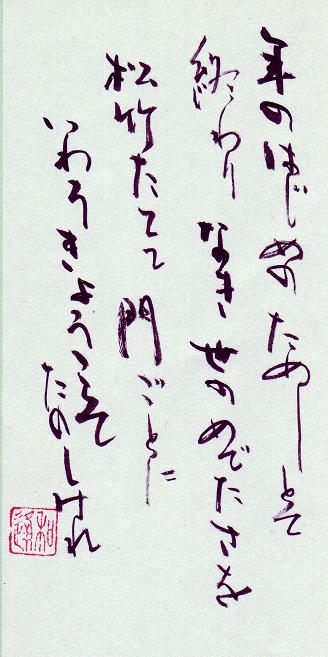 年のはじめの ためしとて
終わり なき 世の めでたさを
松竹たてて 門ごとに
いわうきょうこそ
たのしけれ